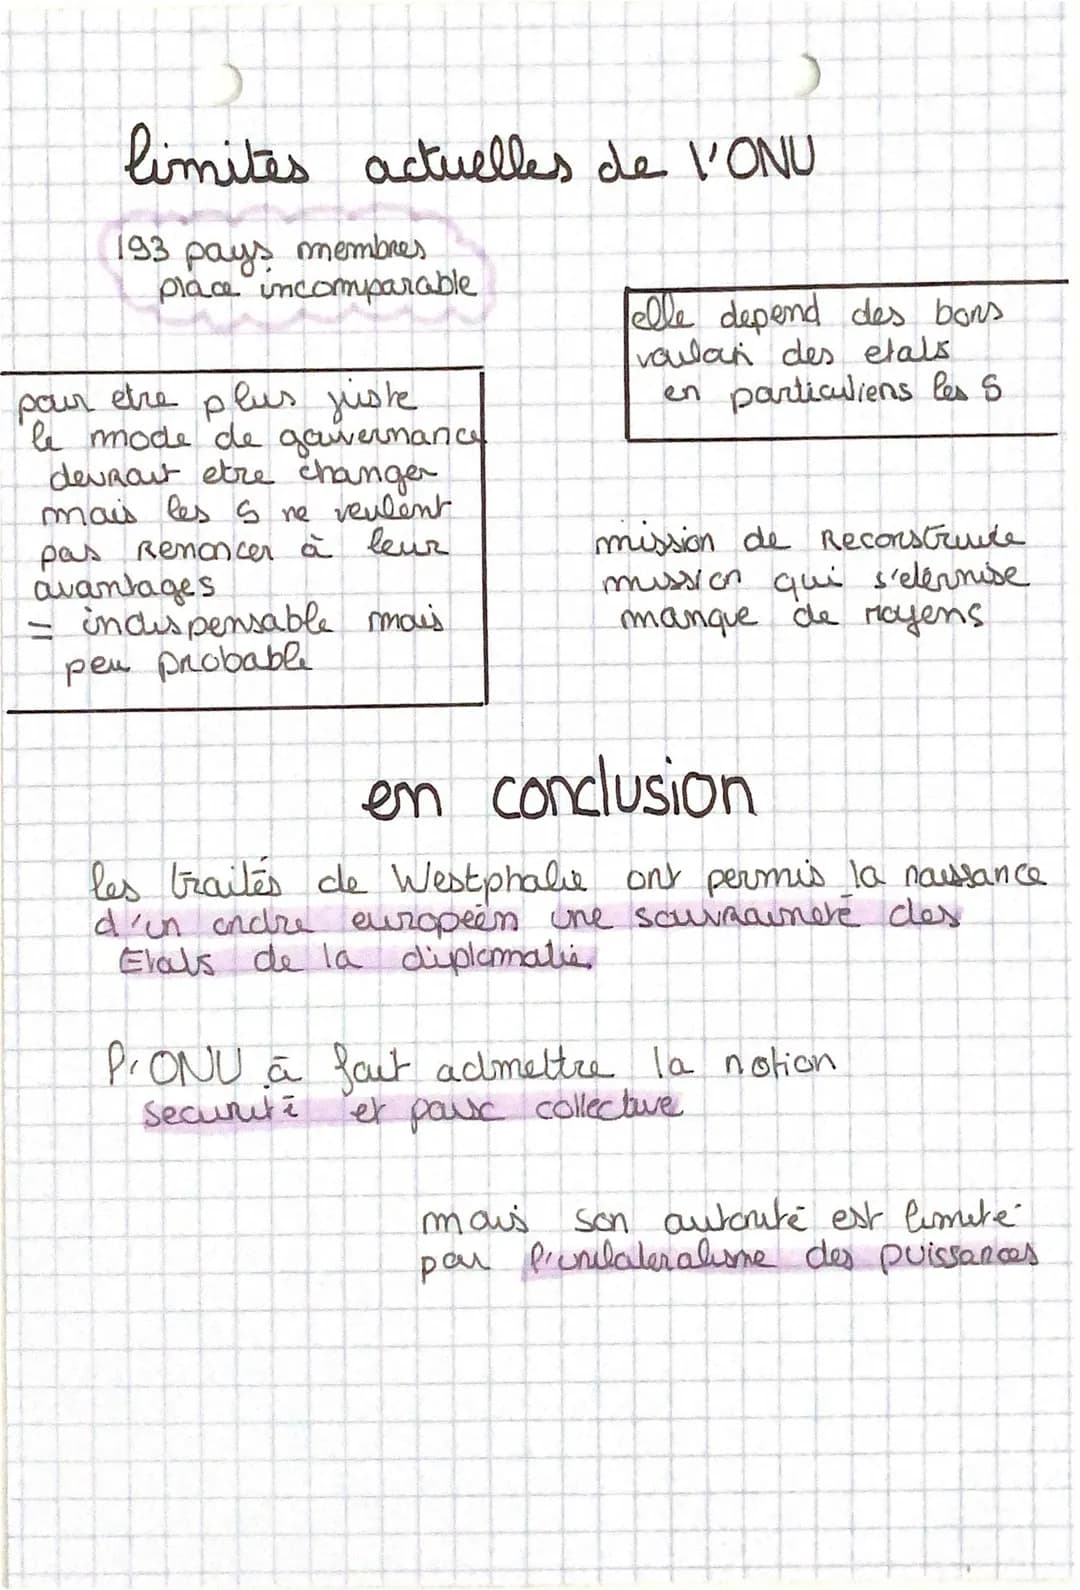 limites actuelles de l'ONU
193 pays membres
place incomparable
elle depend des bons
vouloir des etats
en particuliers les 5
pour etre plus juste
le mode de gouvernance
devrait etre changer
mais les 5 ne veulent
pas Renoncer à leur
avantages
= indispensable mais
peu probable
mission de Reconstruire
mission qui s'eternise
manque de moyens
en conclusion
les traités de Westphalie ont permis la naissance
d'un ordre européen une souvraineté des
Etats de la diplomatie
l'ONU à fait admettre la notion
securité et paix collective
mais son autorité est limité
par l'unilateralisme des puissances